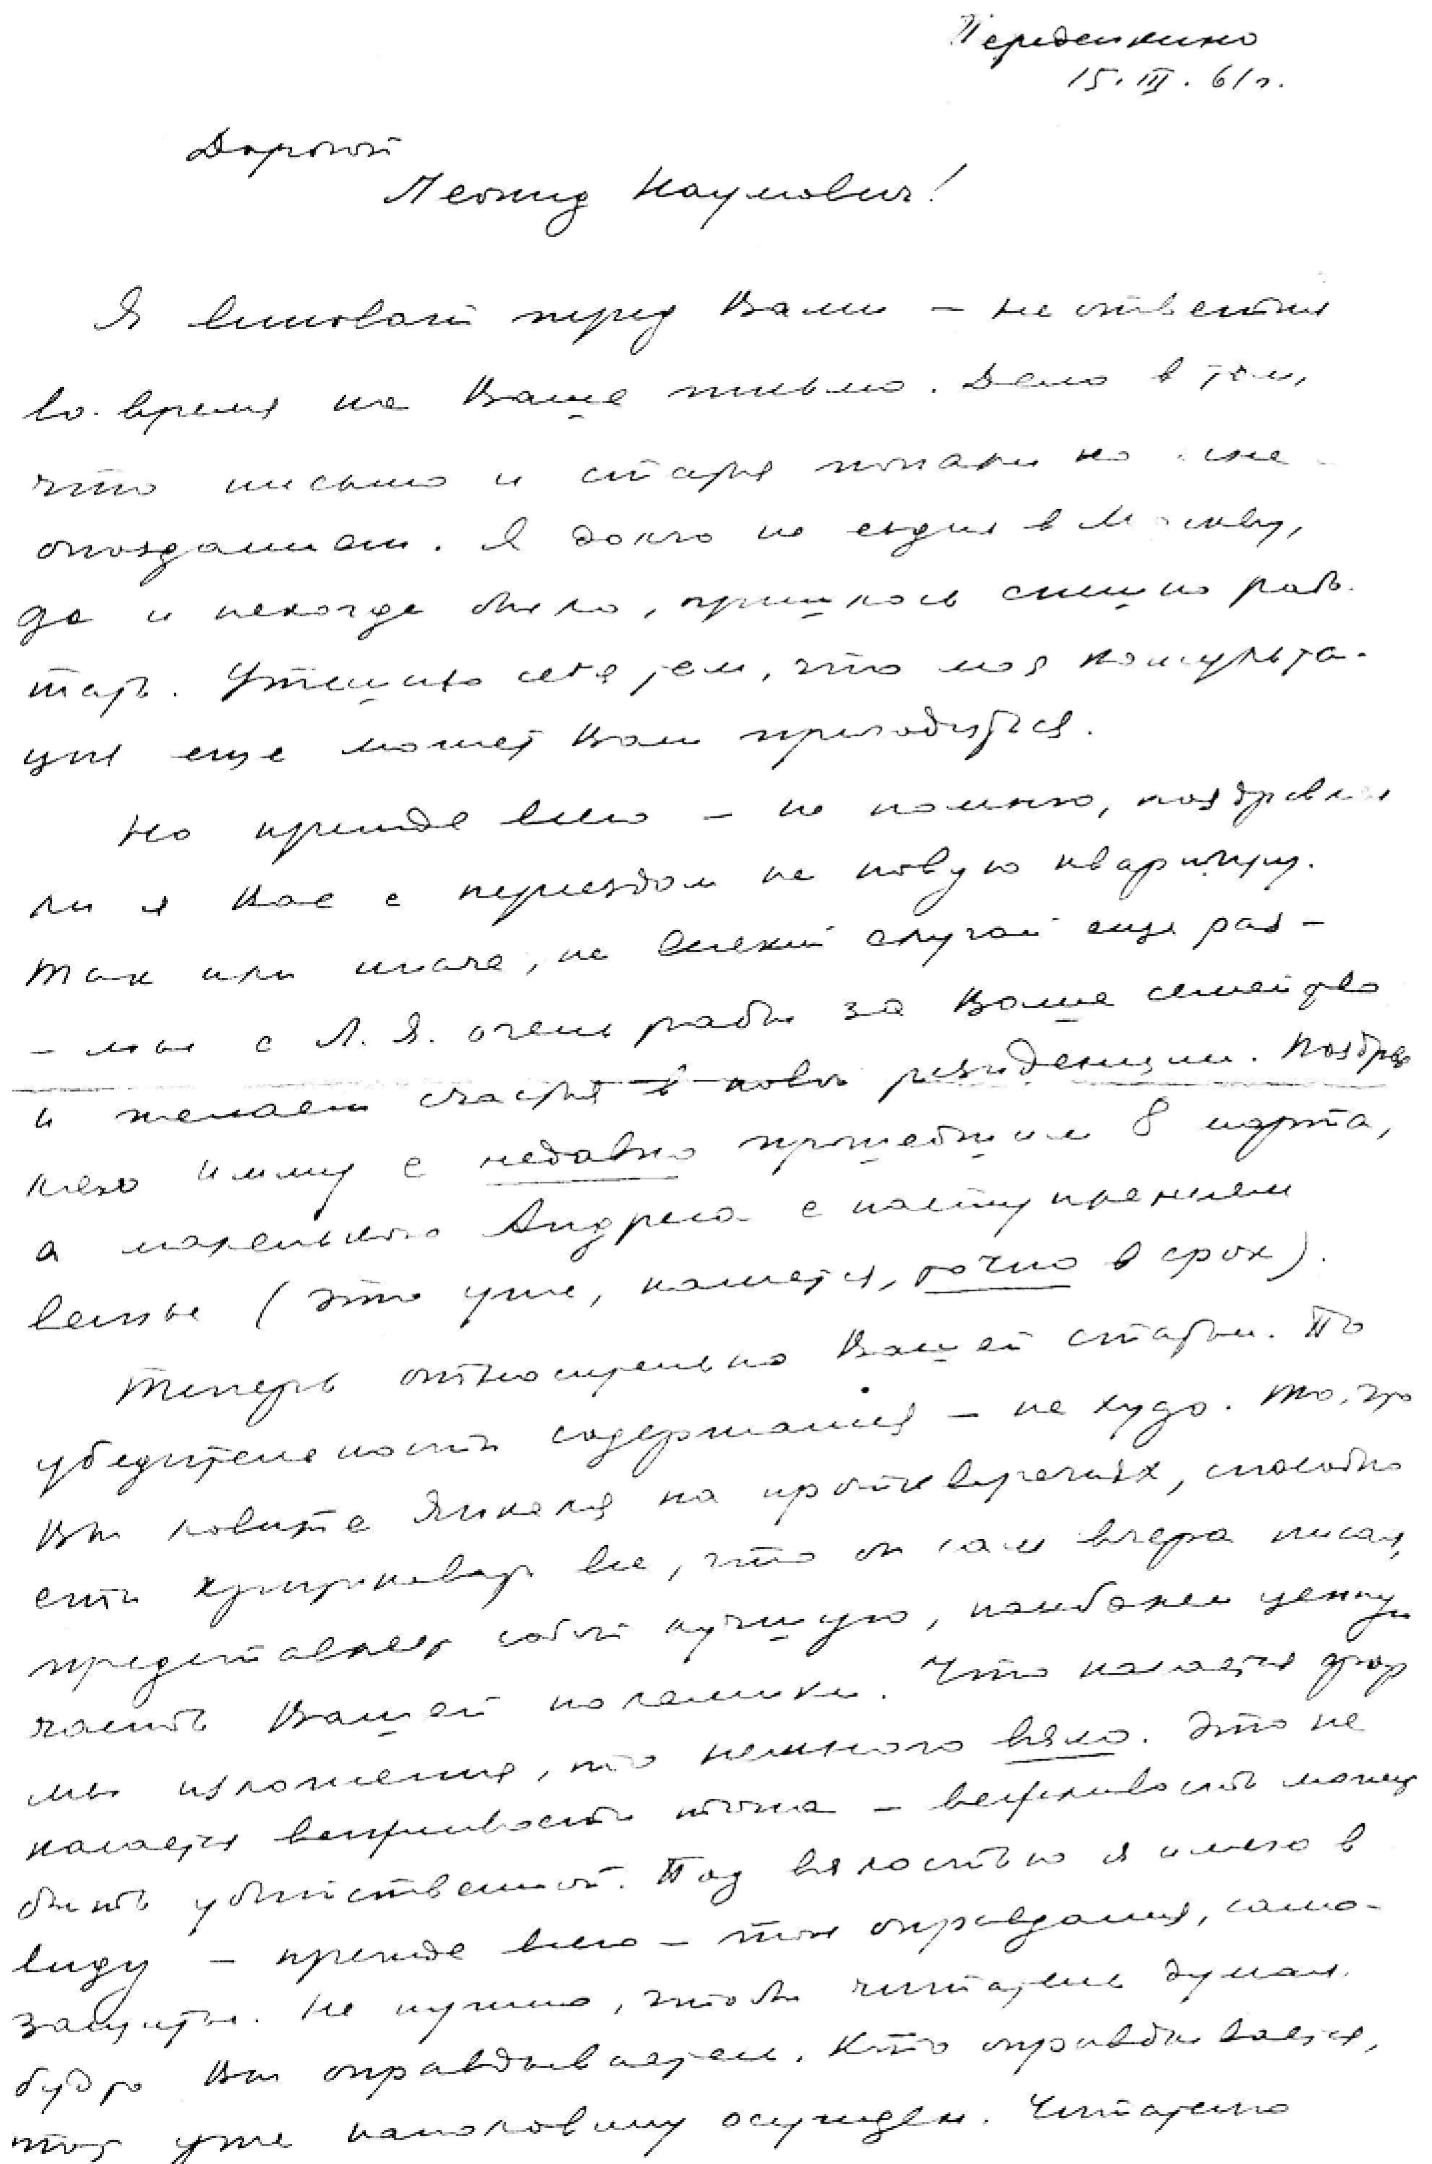 Переделкино
15.III.61г.
Дорогой
Леонид Наумович!
Я виноват перед Вами – не ответил
во-время на Ваше письмо. Дело в том,
что письмо и статья попали ко мне
с опозданием. Я долго не ездил в Москву,
да и некогда было, пришлось спешно рабо-
тать. Утешаю себя тем, что моя консульта-
ция еще может Вам пригодиться.
Но прежде всего – не помню, поздравлял
ли я Вас с переездом на новую квартиру.
Так или иначе, на всякий случай еще раз –
– мы с Л. Я. очень рады за Ваше семейство
и желаем счастья в новой резиденции. Поздрав
ляю Имму с недавно прошедшим 8 марта,
а маленького Андрея с наступлением
весны (это уже, кажется, точно в срок).
Теперь относительно Вашей статьи. По
убедительности содержания – не худо. То, что
Вы ловите Якеля на противоречиях, способно
сти зачеркивать все, что он сам вчера писал,
представляет собой лучшую, наиболее ценную
часть Вашей полемики. Что касается фор
мы изложения, то немного вяло. Это не
касается вежливости тона – вежливость может
быть убийственной. Под вялостью я имею в
виду – прежде всего – тон оправдания, само-
защиты. Не нужно, чтобы читатель думал
будто Вы оправдываетесь. Кто оправдывается,
тот уже наполовину осужден. Читателю